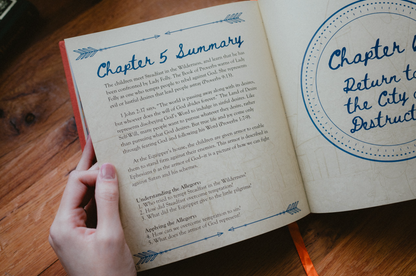 Chapter 5 Summary
The children meet Steadfast in the Wilderness, and learn that he has
been confronted by Lady Folly. The Book of Proverbs warns of Lady
Folly as one who tempts people to rebel against God. She represents
evil or hurtful desires that lead people astray (Proverbs 9:13).
1 John 2:17 says, "The world is passing away with its desires,
but whoever does the will of God abides forever." The Land of Desire
represents disobeying God's Word to indulge in sinful desires. Like
Self-Will, many people want to pursue whatever they desire, rather
than pursuing what God desires. But true life and joy comes
through fearing God and following his Word (Proverbs
At the Equipper's house, the children are given armor to enable
them to stand firm against their enemies. This armor is described in
Ephesians 6 as the armor of God—it is a picture of how we can fight
against Satan and his schemes.
Understanding the Allegory:
1. Who tried to tempt Steadfast in the Wilderness?
2. How did Steadfast overcome temptation?
3. What did the Equipper give to the little pilgrims?
Applying the Allegory:
4. How can we overcome temptation to sin?
5. What does the armor of God represent?
Chapter
Return to
the City of
Destruct